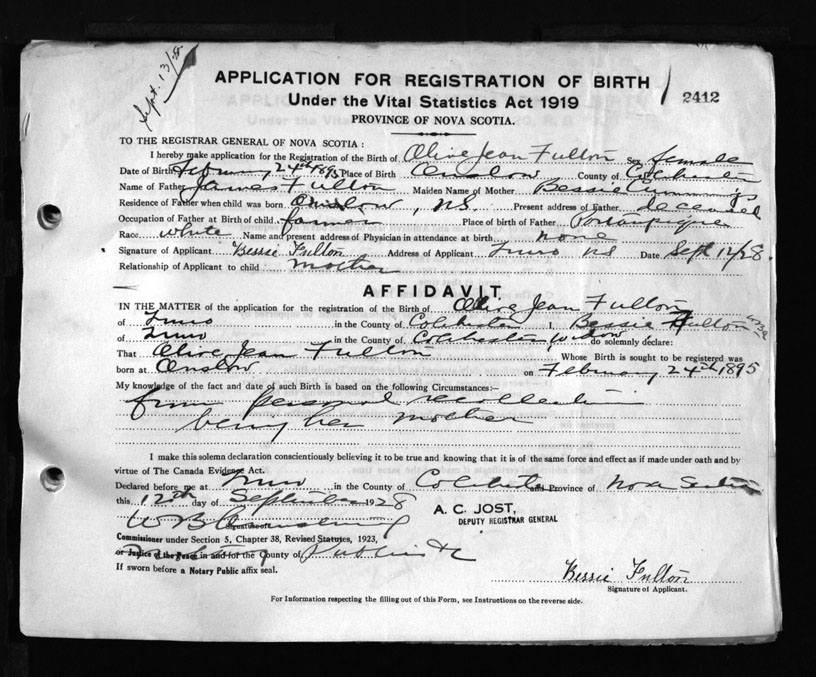 Sept. 13/28
APPLICATION FOR REGISTRATION OF BIRTH
2412
Under the Vital Statistics Act 1919
PROVINCE OF NOVA SCOTIA.
TO THE REGISTRAR GENERAL OF NOVA SCOTIA :
I hereby make application for the Registration of the Birth of Olive Jean Fulton Sex female
Date of Birth February 24th 1895 Place of Birth Onslow County of Colchester
Name of Father James Fulton Maiden Name of Mother Bessie Cummings
Residence of Father when child was born Onslow, NS Present address of Father deceased
Occupation of Father at Birth of child farmer Place of birth of Father Portaupique
Race white Name and present address of Physician in attendance at birth none
Signature of Applicant Bessie Fulton Address of Applicant Truro NS Date Sept 12/28.
Relationship of Applicant to child mother
AFFIDAVIT
IN THE MATTER of the application for the registration of the Birth of Olive Jean Fulton
of Truro in the County of Colchester I, Bessie Fulton
of Truro in the County of Colchester widow do solemnly declare:
That Olive Jean Fulton Whose Birth is sought to be registered was
born at Onslow on February 24th 1895
My knowledge of the fact and date of such Birth is based on the following Circumstances:–
from personal recollection
being her mother
I make this solemn declaration conscientiously believing it to be true and knowing that it is of the same force and effect as if made under oath and by
virtue of The Canada Evidence Act.
Declared before me at Truro in the County of Colchester and Province of Nova Scotia
this 12th day of September 1928
A. C. JOST,
DEPUTY REGISTRAR GENERAL
W B
Signature of
Commissioner under Section 5, Chapter 38, Revised Statutes, 1923,
or Justice of the Peace in and for the County of Public
If sworn before a Notary Public affix seal.
Bessie Fulton
Signature of Applicant.
For Information respecting the filling out of this Form, see Instructions on the reverse side.